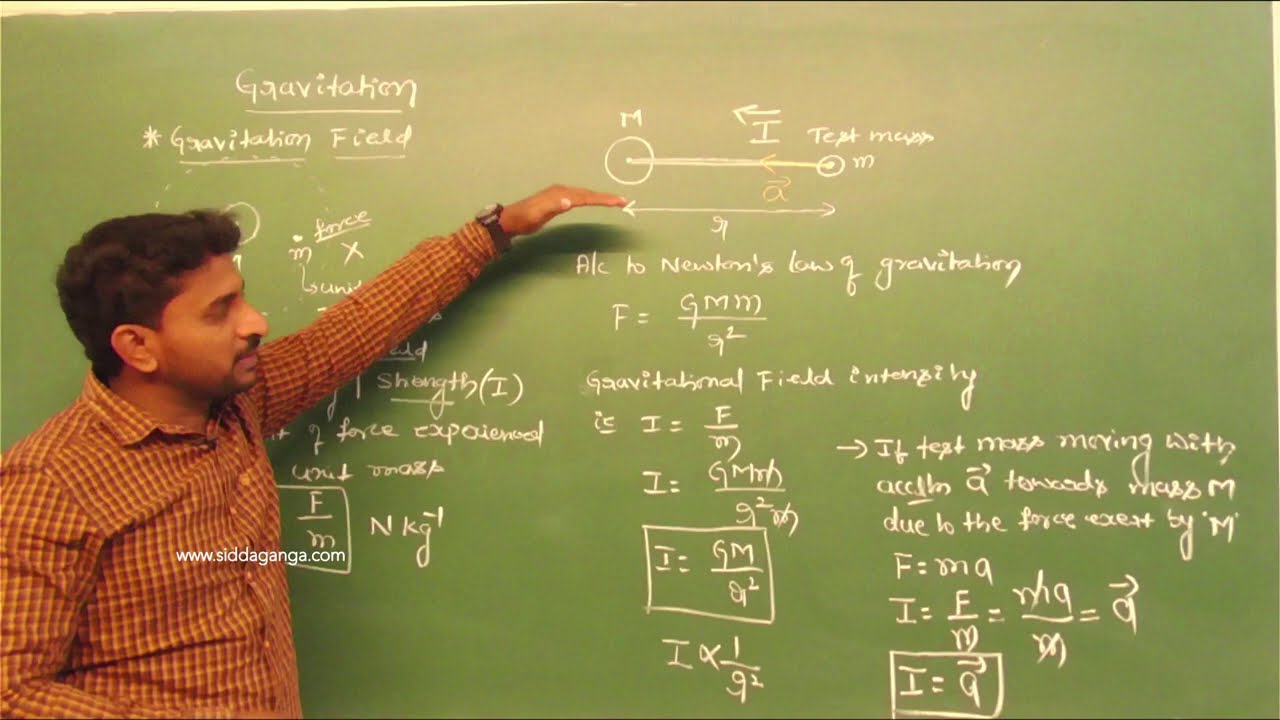 Gravitation
* Gravitation Field
force
m X
unit
Strength (I)
of force experienced
unit mass
F/m N kg⁻¹
www.siddaganga.com
M I Test mass
m
a⃗
r
A/c to Newton's law of gravitation
F = GMm/r²
Gravitational Field intensity
is I = F/m
I = GMm/r²m
I = GM/r²
I ∝ 1/r²
→ If test mass moving with
accln a⃗ towards mass M
due to the force exert by 'M'
F = ma
I = F/m = ma/m = a⃗
I = a⃗